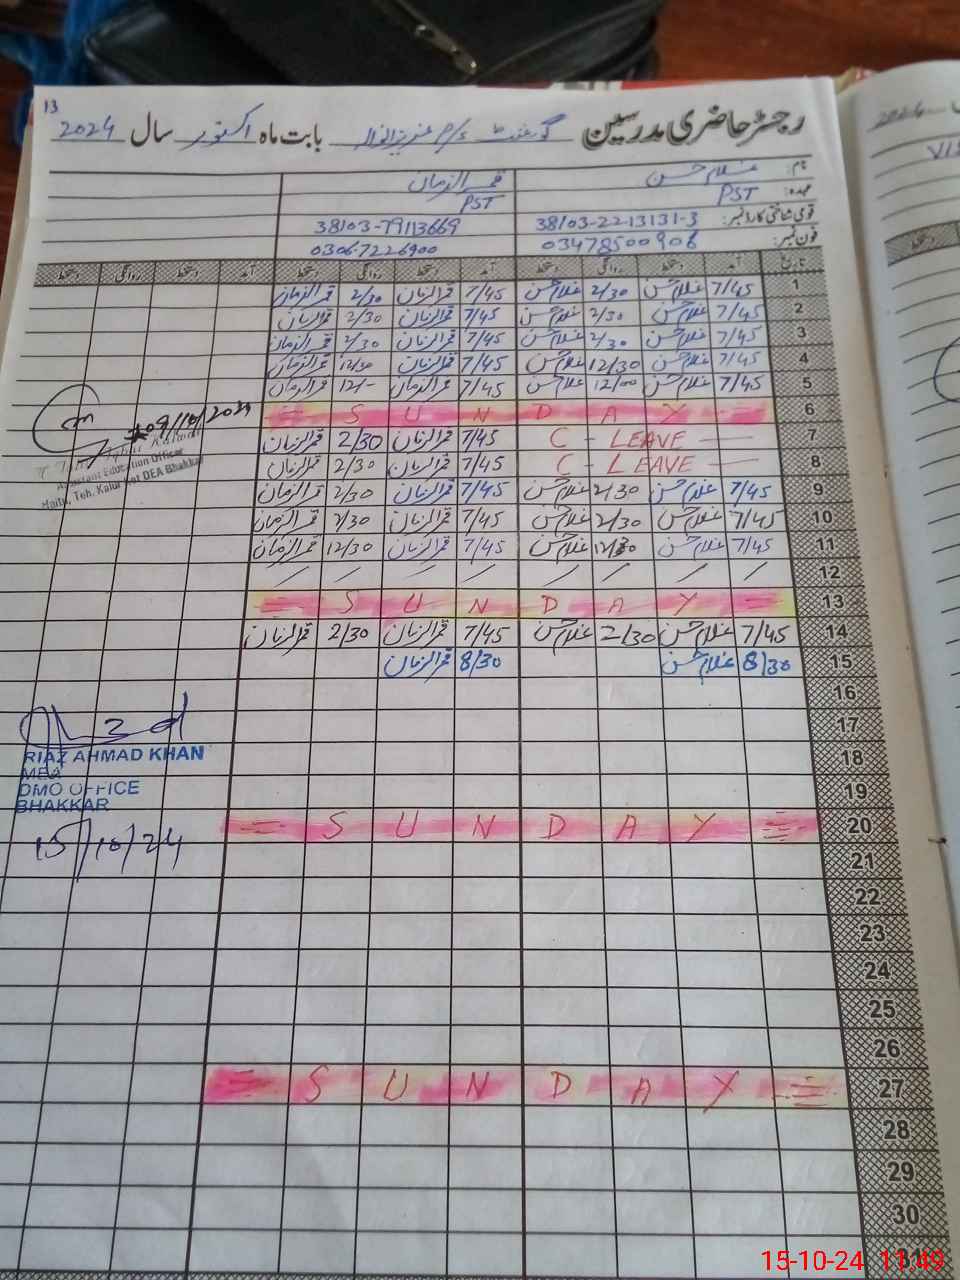 13
رجسٹر حاضری مدرسین گورنمنٹ بابت ماہ اکتوبر سال 2024
نام: غلام حسن قمر الزمان
عہدہ: PST PST
قومی شناختی کارڈ نمبر: 38103-2213131-3 38103-79113669
فون نمبر: 03478500906 0306-7226900
تاریخ آمد دستخط روانگی دستخط آمد دستخط روانگی دستخط آمد دستخط روانگی دستخط
1 7/45 غلام حسن 2/30 غلام حسن 7/45 قمر الزمان 2/30 قمر الزمان
2 7/45 غلام حسن 2/30 غلام حسن 7/45 قمر الزمان 2/30 قمر الزمان
3 7/45 غلام حسن 2/30 غلام حسن 7/45 قمر الزمان 2/30 قمر الزمان
4 7/45 غلام حسن 12/30 غلام حسن 7/45 قمر الزمان 12/30 قمر الزمان
5 7/45 غلام حسن 12/00 غلام حسن 7/45 قمر الزمان 12/- قمر الزمان
S U N D A Y 6
C - LEAVE 7
7/45 قمر الزمان 2/30 قمر الزمان
C - LEAVE 8
7/45 قمر الزمان 2/30 قمر الزمان
9 7/45 غلام حسن 2/30 غلام حسن 7/45 قمر الزمان 2/30 قمر الزمان
10 7/45 غلام حسن 2/30 غلام حسن 7/45 قمر الزمان 2/30 قمر الزمان
11 7/45 غلام حسن 12/30 غلام حسن 7/45 قمر الزمان 12/30 قمر الزمان
12 / / / / / / / /
S U N D A Y 13
14 7/45 غلام حسن 2/30 غلام حسن 7/45 قمر الزمان 2/30 قمر الزمان
15 8/30 غلام حسن 8/30 قمر الزمان
16
17
18
19
S U N D A Y 20
21
22
23
24
25
26
S U N D A Y 27
28
29
30
31
09/10/2024
Assistant Education Officer
DEA Bhakkar
RIAZ AHMAD KHAN
MEA
DMO OFFICE
BHAKKAR
15/10/24
2024
VIS
15-10-24 11:49